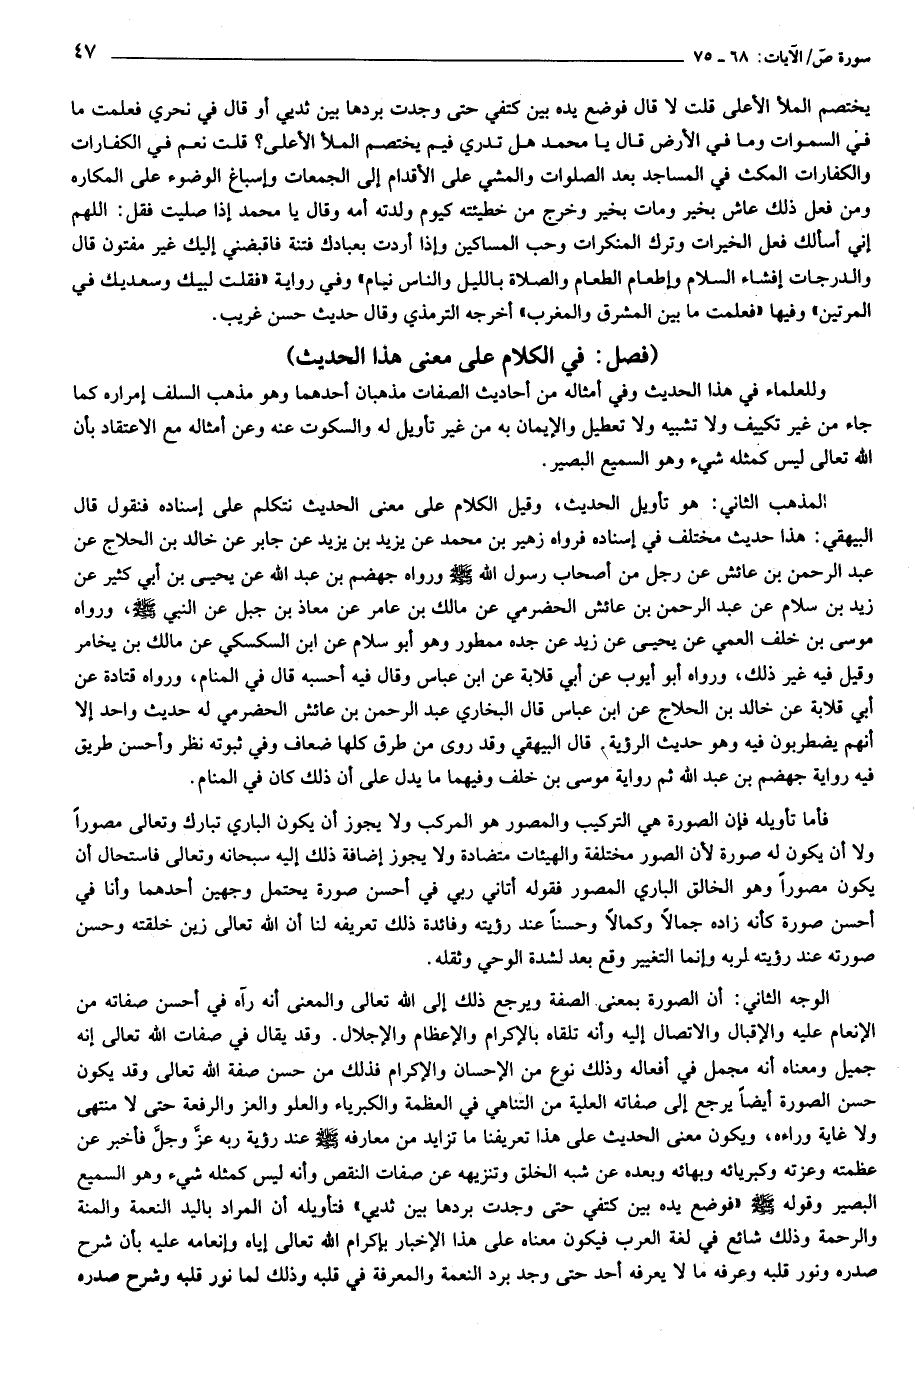 سورة صۤ/ الآيات: ٦٨ ـ ٧٥ ٤٧
يختصم الملأ الأعلى قلت لا قال فوضع يده بين كتفي حتى وجدت بردها بين ثديي أو قال في نحري فعلمت ما
في السموات وما في الأرض قال يا محمد هل تدري فيم يختصم الملأ الأعلى؟ قلت نعم في الكفارات
والكفارات المكث في المساجد بعد الصلوات والمشي على الأقدام إلى الجمعات وإسباغ الوضوء على المكاره
ومن فعل ذلك عاش بخير ومات بخير وخرج من خطيئته كيوم ولدته أمه وقال يا محمد إذا صليت فقل: اللهم
إني أسألك فعل الخيرات وترك المنكرات وحب المساكين وإذا أردت بعبادك فتنة فاقبضني إليك غير مفتون قال
والدرجات إفشاء السلام وإطعام الطعام والصلاة بالليل والناس نيام» وفي رواية «فقلت لبيك وسعديك في
المرتين» وفيها «فعلمت ما بين المشرق والمغرب» أخرجه الترمذي وقال حديث حسن غريب.
(فصل: في الكلام على معنى هذا الحديث)
وللعلماء في هذا الحديث وفي أمثاله من أحاديث الصفات مذهبان أحدهما وهو مذهب السلف إمراره كما
جاء من غير تكييف ولا تشبيه ولا تعطيل والإيمان به من غير تأويل له والسكوت عنه وعن أمثاله مع الاعتقاد بأن
الله تعالى ليس كمثله شيء وهو السميع البصير.
المذهب الثاني: هو تأويل الحديث، وقيل الكلام على معنى الحديث نتكلم على إسناده فنقول قال
البيهقي: هذا حديث مختلف في إسناده فرواه زهير بن محمد عن يزيد بن يزيد عن جابر عن خالد بن الحلاج عن
عبد الرحمن بن عائش عن رجل من أصحاب رسول الله ﷺ ورواه جهضم بن عبد الله عن يحيى بن أبي كثير عن
زيد بن سلام عن عبد الرحمن بن عائش الحضرمي عن مالك بن عامر عن معاذ بن جبل عن النبي ﷺ، ورواه
موسى بن خلف العمي عن يحيى عن زيد عن جده ممطور وهو أبو سلام عن ابن السكسكي عن مالك بن يخامر
وقيل فيه غير ذلك، ورواه أبو أيوب عن أبي قلابة عن ابن عباس وقال فيه أحسبه قال في المنام، ورواه قتادة عن
أبي قلابة عن خالد بن الحلاج عن ابن عباس قال البخاري عبد الرحمن بن عائش الحضرمي له حديث واحد إلا
أنهم يضطربون فيه وهو حديث الرؤية، قال البيهقي وقد روى من طرق كلها ضعاف وفي ثبوته نظر وأحسن طريق
فيه رواية جهضم بن عبد الله ثم رواية موسى بن خلف وفيهما ما يدل على أن ذلك كان في المنام.
فأما تأويله فإن الصورة هي التركيب والمصور هو المركب ولا يجوز أن يكون الباري تبارك وتعالى مصوراً
ولا أن يكون له صورة لأن الصور مختلفة والهيئات متضادة ولا يجوز إضافة ذلك إليه سبحانه وتعالى فاستحال أن
يكون مصوراً وهو الخالق الباري المصور فقوله أتاني ربي في أحسن صورة يحتمل وجهين أحدهما وأنا في
أحسن صورة كأنه زاده جمالاً وكمالاً وحسناً عند رؤيته وفائدة ذلك تعريفه لنا أن الله تعالى زين خلقته وحسن
صورته عند رؤيته لربه وإنما التغيير وقع بعد لشدة الوحي وثقله.
الوجه الثاني: أن الصورة بمعنى الصفة ويرجع ذلك إلى الله تعالى والمعنى أنه رآه في أحسن صفاته من
الإنعام عليه والإقبال والاتصال إليه وأنه تلقاه بالإكرام والإعظام والإجلال. وقد يقال في صفات الله تعالى إنه
جميل ومعناه أنه مجمل في أفعاله وذلك نوع من الإحسان والإكرام فذلك من حسن صفة الله تعالى وقد يكون
حسن الصورة أيضاً يرجع إلى صفاته العلية من التناهي في العظمة والكبرياء والعلو والعز والرفعة حتى لا منتهى
ولا غاية وراءه، ويكون معنى الحديث على هذا تعريفنا ما تزايد من معارفه ﷺ عند رؤية ربه عزَّ وجلَّ فأخبر عن
عظمته وعزته وكبريائه وبهائه وبعده عن شبه الخلق وتنزيهه عن صفات النقص وأنه ليس كمثله شيء وهو السميع
البصير وقوله ﷺ «فوضع يده بين كتفي حتى وجدت بردها بين ثديي» فتأويله أن المراد باليد النعمة والمنة
والرحمة وذلك شائع في لغة العرب فيكون معناه على هذا الإخبار بإكرام الله تعالى إياه وإنعامه عليه بأن شرح
صدره ونور قلبه وعرفه ما لا يعرفه أحد حتى وجد برد النعمة والمعرفة في قلبه وذلك لما نور قلبه وشرح صدره